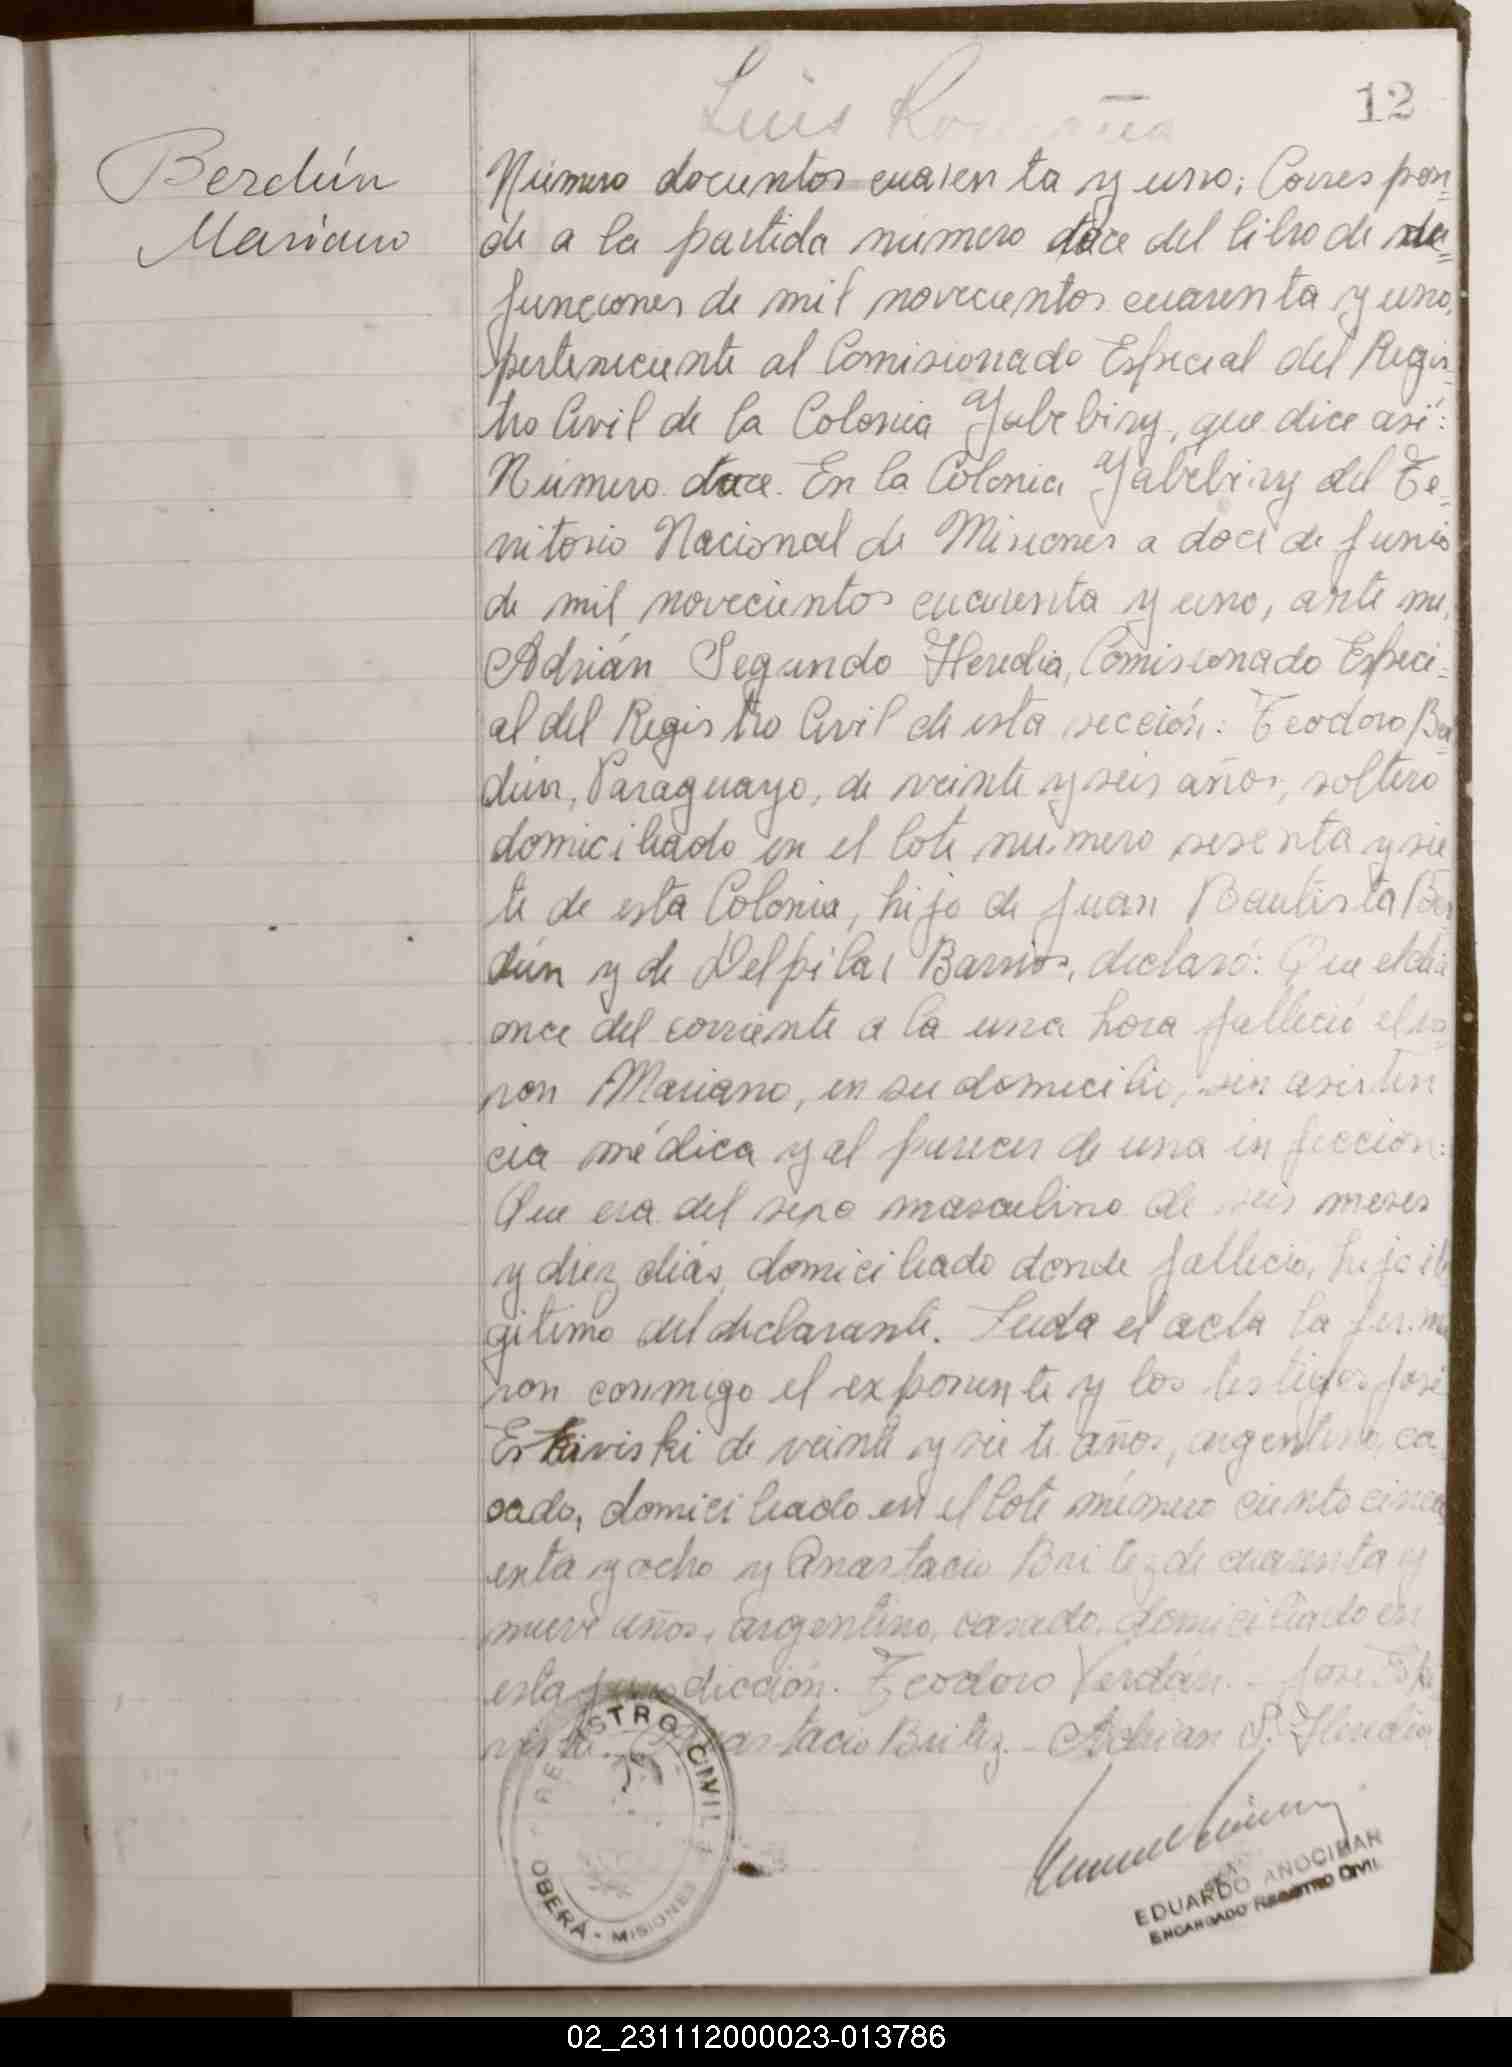 Luis
12
Berdún
Mariano
Número docientos cuarenta y uno; Correspon=
de a la partida número doce del libro de de=
funciones de mil novecientos cuarenta y uno,
perteneciente al Comisionado Especial del Regis=
tro Civil de la Colonia Yabebiry, que dice así:
Número doce. En la Colonia Yabebiry del Te=
rritorio Nacional de Misiones a doce de Junio
de mil novecientos cuarenta y uno, ante mi,
Adrián Segundo Heredia, Comisionado Especi=
al del Registro Civil de esta sección: Teodoro Ber=
dún, Paraguayo, de veinte y seis años, soltero
domiciliado en el lote número sesenta y sie
te de esta Colonia, hijo de Juan Bautista Ber
dún y de Delpilar Barrios, declaró: Que el dia
once del corriente a la una hora falleció el va=
ron Mariano, en su domicilio, sin asisten
cia médica y al parecer de una infección:
Que era del sexo masculino de seis meses
y diez diás, domiciliado donde fallecio, hijo ile
gitimo del declarante. Leida el acta la firma
ron conmigo el exponente y los testigos José
Eskiviski de veinte y siete años, argentino, ca
sado, domiciliado en el lote número ciento cincu
enta y ocho y Anastacio Britez de cuarenta y
nueve años, argentino, casado, domiciliado en
esta jurisdicción. Teodoro Verdún. - José Eski
viski. - Anastacio Britez. - Adrian S. Heredia
REGISTRO CIVIL
OBERÁ - MISIONES
EDUARDO ANOCIBAR
ENCARGADO REGISTRO CIVIL
02_231112000023-013786